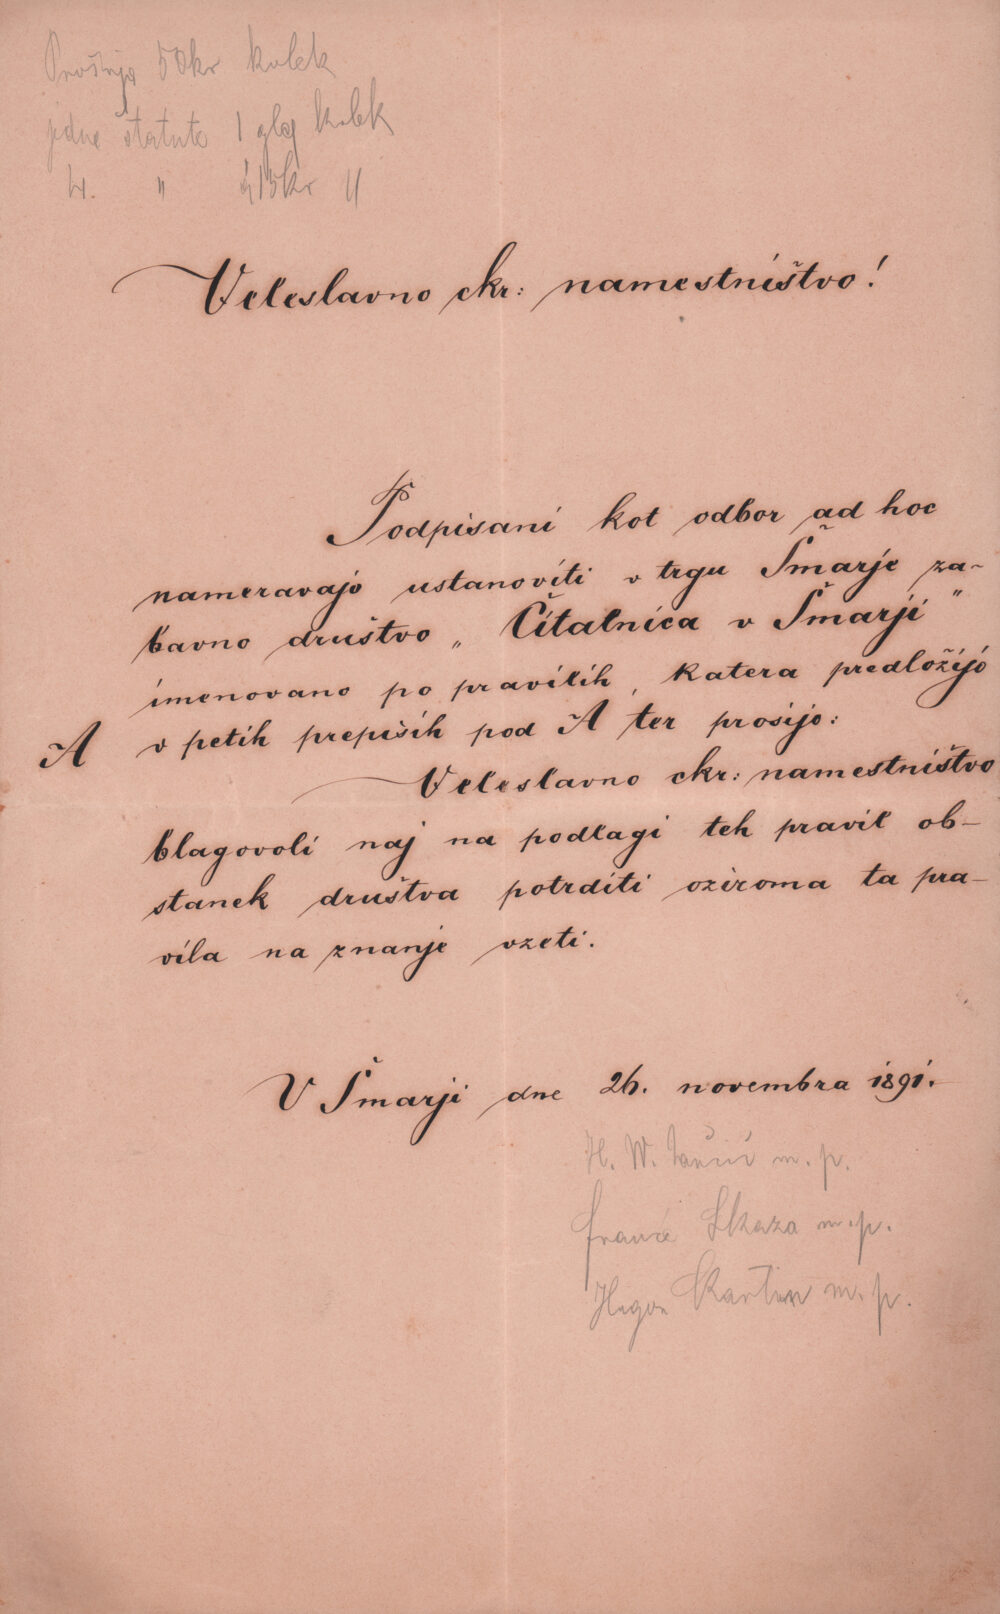 Prošnja 50kr kolek
jedne štatute 1 gld kolek
4. " à 15kr "
Veleslavno ckr: namestništvo!
Podpisani kot odbor ad hoc
nameravajo ustanoviti v trgu Šmarje za-
bavno društvo „Čitalnica v Šmarji"
imenovano po pravilih, katera predložijó
A v petih prepisih pod A ter prosijo:
Veleslavno ckr: namestništvo
blagovoli naj na podlagi teh pravil ob-
stanek društva potrditi oziroma ta pra-
vila na znanje vzeti.
V Šmarji dne 26. novembra 1891.
H. W. m. p.
France Skaza m.p.
m. p.